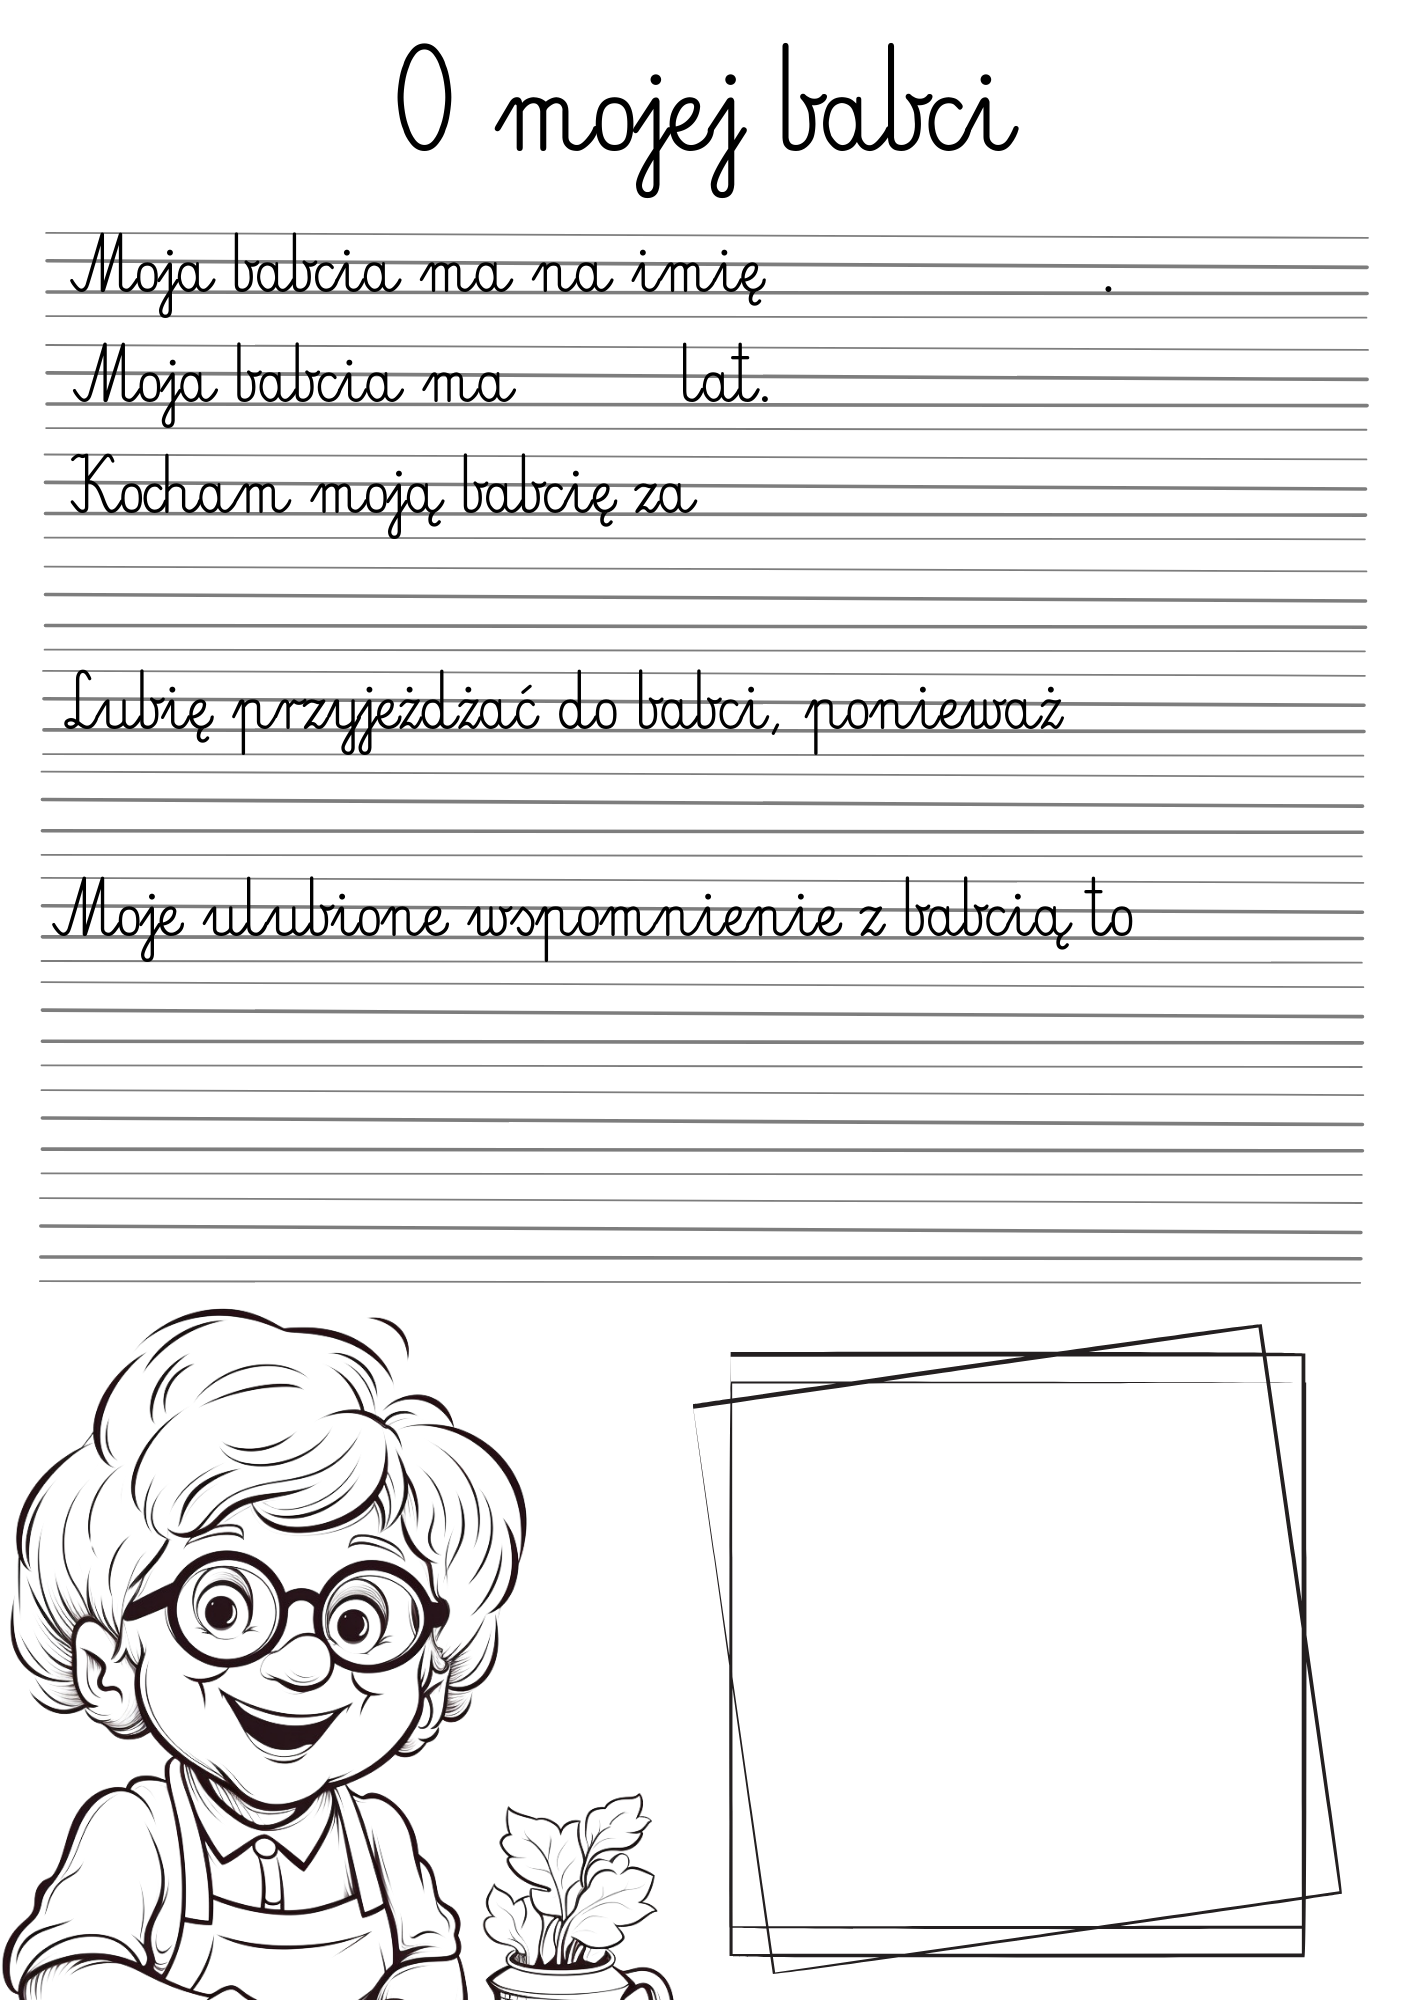 O mojej babci
Moja babcia ma na imię .
Moja babcia ma lat.
Kocham moją babcię za
Lubię przyjeżdżać do babci, ponieważ
Moje ulubione wspomnienie z babcią to